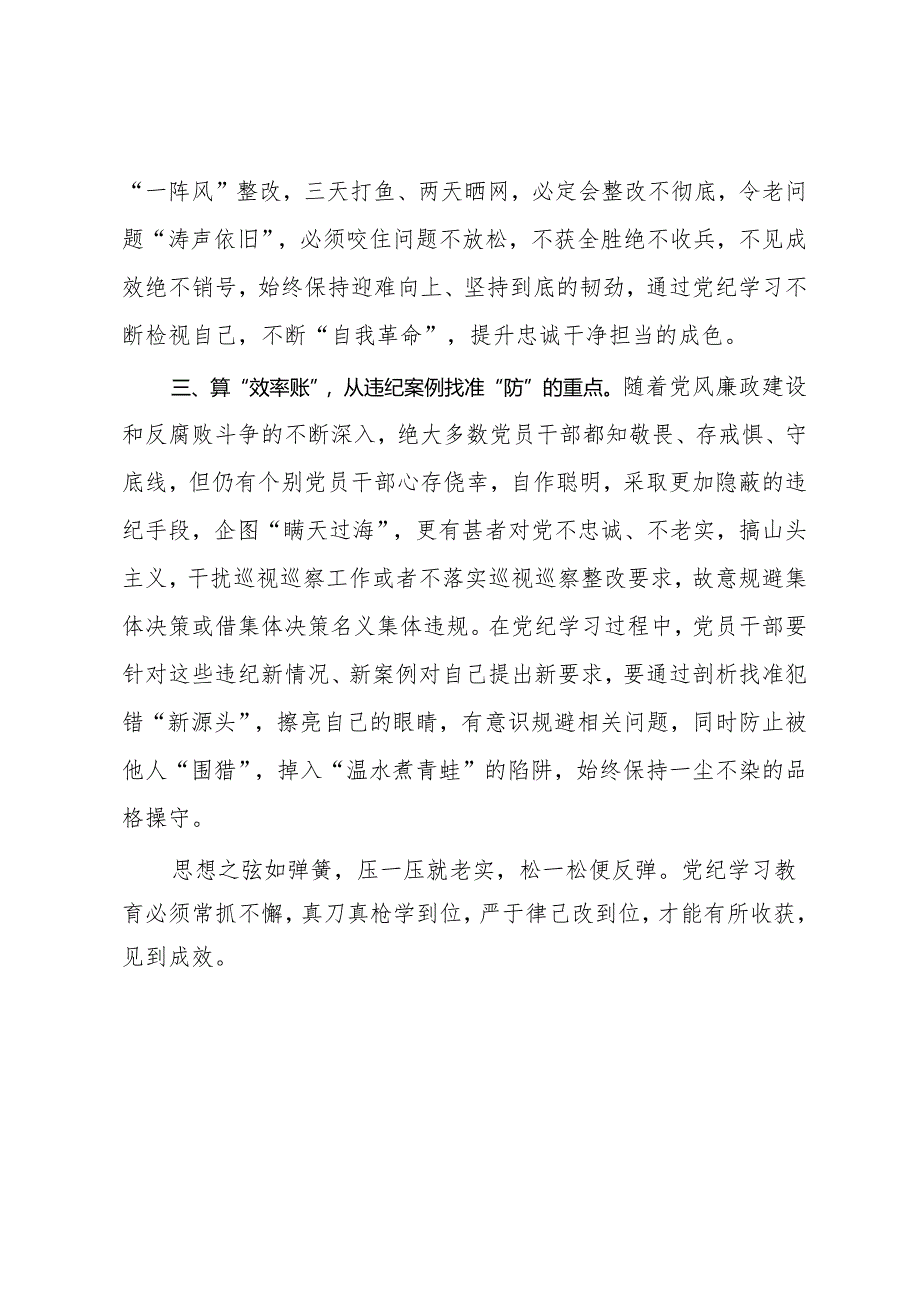 “一阵风”整改，三天打鱼、两天晒网，必定会整改不彻底，令老问
题“涛声依旧”，必须咬住问题不放松，不获全胜绝不收兵，不见成
效绝不销号，始终保持迎难向上、坚持到底的韧劲，通过党纪学习不
断检视自己，不断“自我革命”，提升忠诚干净担当的成色。
三、算“效率账”，从违纪案例找准“防”的重点。随着党风廉政建设
和反腐败斗争的不断深入，绝大多数党员干部都知敬畏、存戒惧、守
底线，但仍有个别党员干部心存侥幸，自作聪明，采取更加隐蔽的违
纪手段，企图“瞒天过海”，更有甚者对党不忠诚、不老实，搞山头
主义，干扰巡视巡察工作或者不落实巡视巡察整改要求，故意规避集
体决策或借集体决策名义集体违规。在党纪学习过程中，党员干部要
针对这些违纪新情况、新案例对自己提出新要求，要通过剖析找准犯
错“新源头”，擦亮自己的眼睛，有意识规避相关问题，同时防止被
他人“围猎”，掉入“温水煮青蛙”的陷阱，始终保持一尘不染的品
格操守。
思想之弦如弹簧，压一压就老实，松一松便反弹。党纪学习教
育必须常抓不懈，真刀真枪学到位，严于律己改到位，才能有所收获，
见到成效。